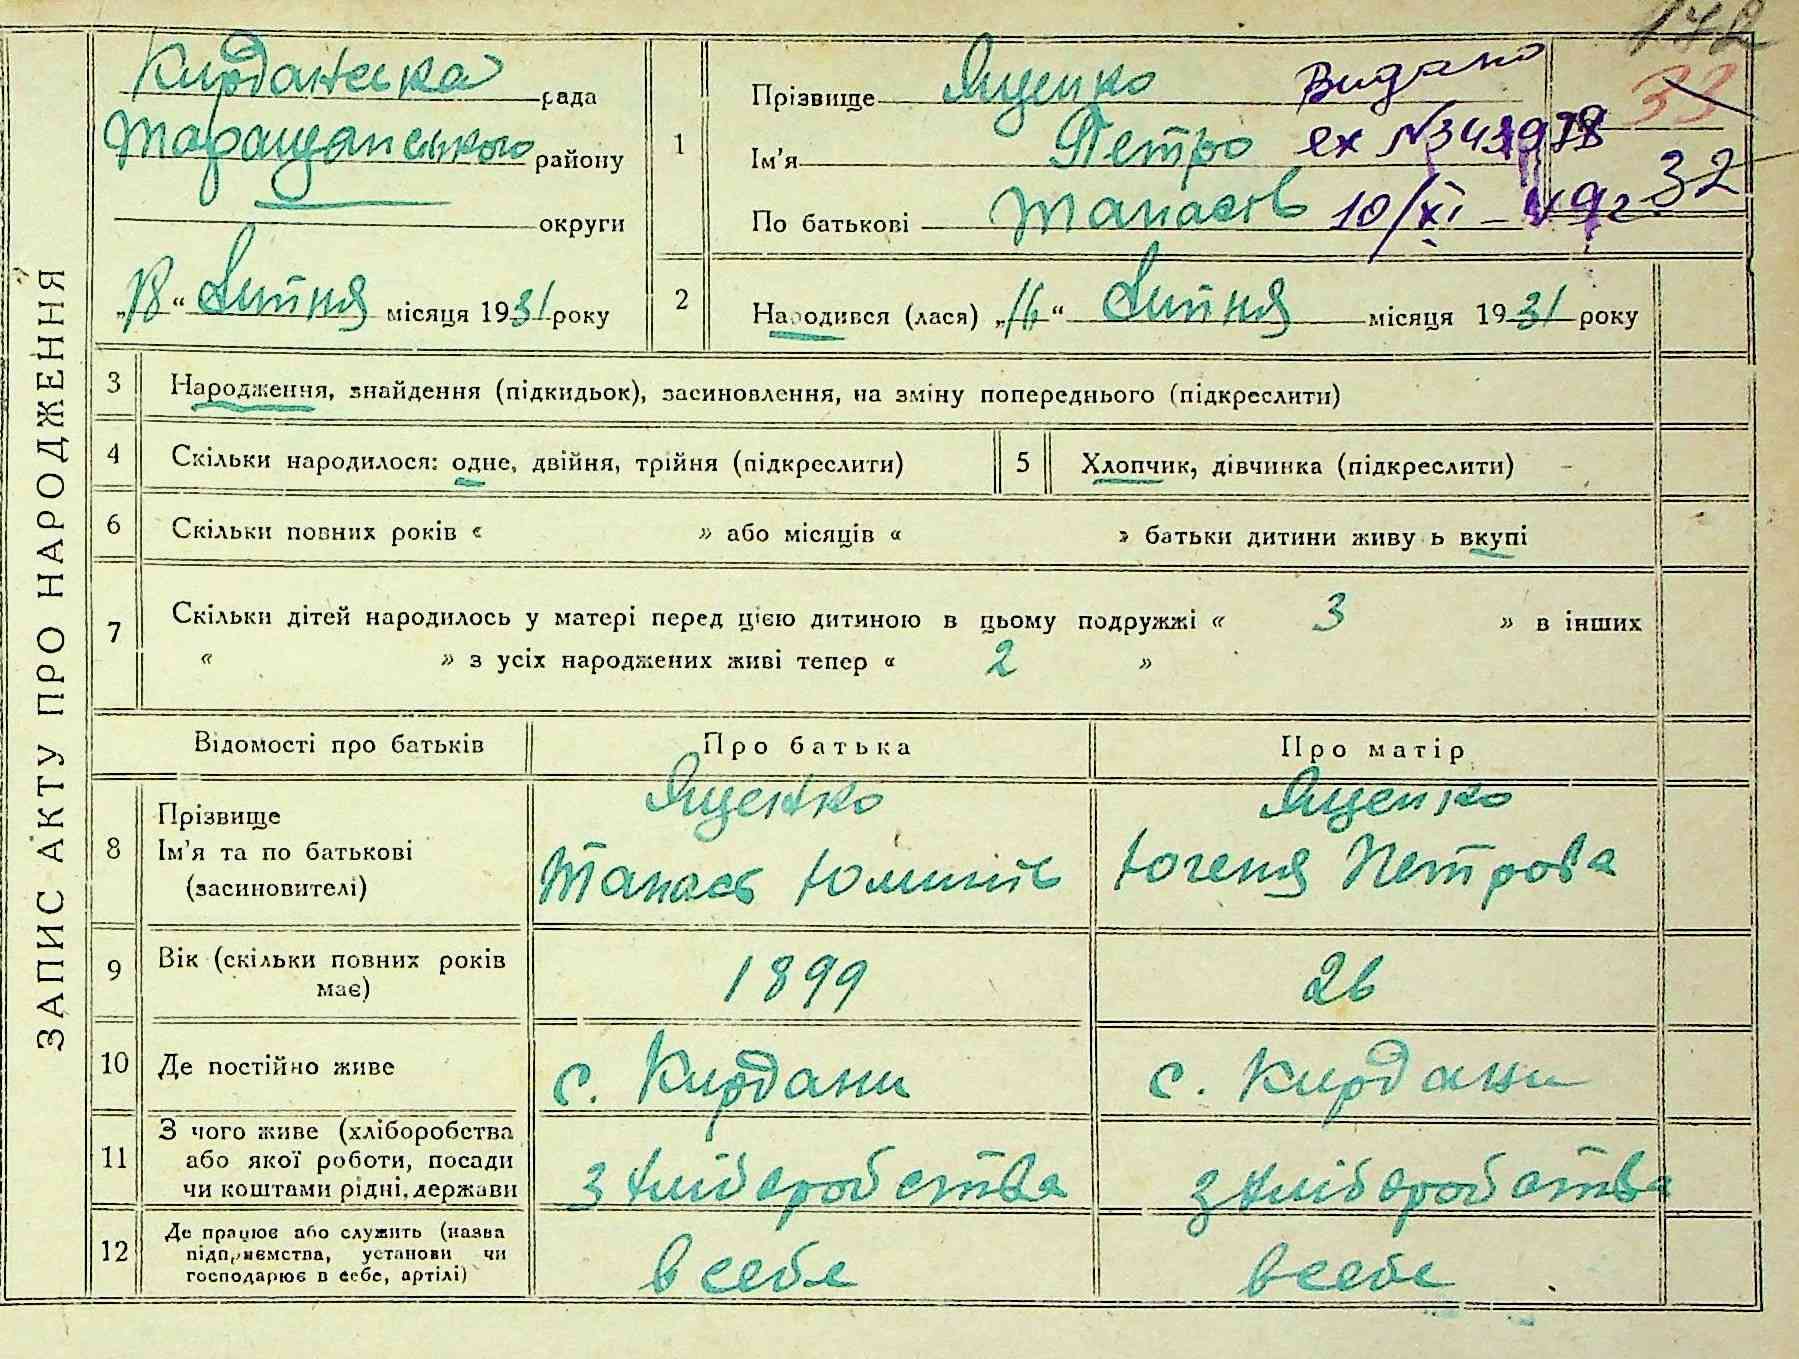 172
ЗАПИС АКТУ ПРО НАРОДЖЕННЯ
Кирданська рада
Таращанського району
округи
„18“ Липня місяця 1931 року
1
Прізвище Яценко
Ім'я Петро
По батькові Танасів
Видано
10/XI-49г.
33
32
2
Народився (лася) „16“ Липня місяця 1931 року
3 Народження, знайдення (підкидьок), засиновлення, на зміну попереднього (підкреслити)
4 Скільки народилося: одне, двійня, трійня (підкреслити)
5 Хлопчик, дівчинка (підкреслити)
6 Скільки повних років « » або місяців « » батьки дитини живу ь вкупі
7 Скільки дітей народилось у матері перед цією дитиною в цьому подружжі « 3 » в інших
« » з усіх народжених живі тепер « 2 »
Відомості про батьків Про батька Про матір
8 Прізвище
Ім'я та по батькові
(засиновителі)
Яценко
Танась
Яценко
Югеня Петрова
9 Вік (скільки повних років
має)
1899
26
10 Де постійно живе
с. Кирдани
с. Кирдани
11 З чого живе (хліборобства
або якої роботи, посади
чи коштами рідні, держави
з хліборобства
з хліборобства
12 Де працює або служить (назва
підприємства, установи чи
господарює в себе, артілі)
в себе
в себе